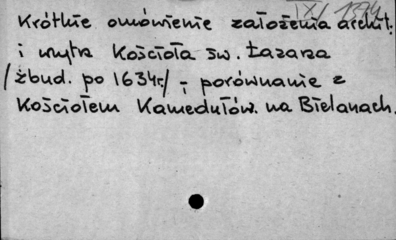 Krótkie omówienie założenia archit.
i wnętr. Kościoła św. Łazarza
/zbud. po 1634r/ - porównanie z
Kościołem Kamedułów na Bielanach.